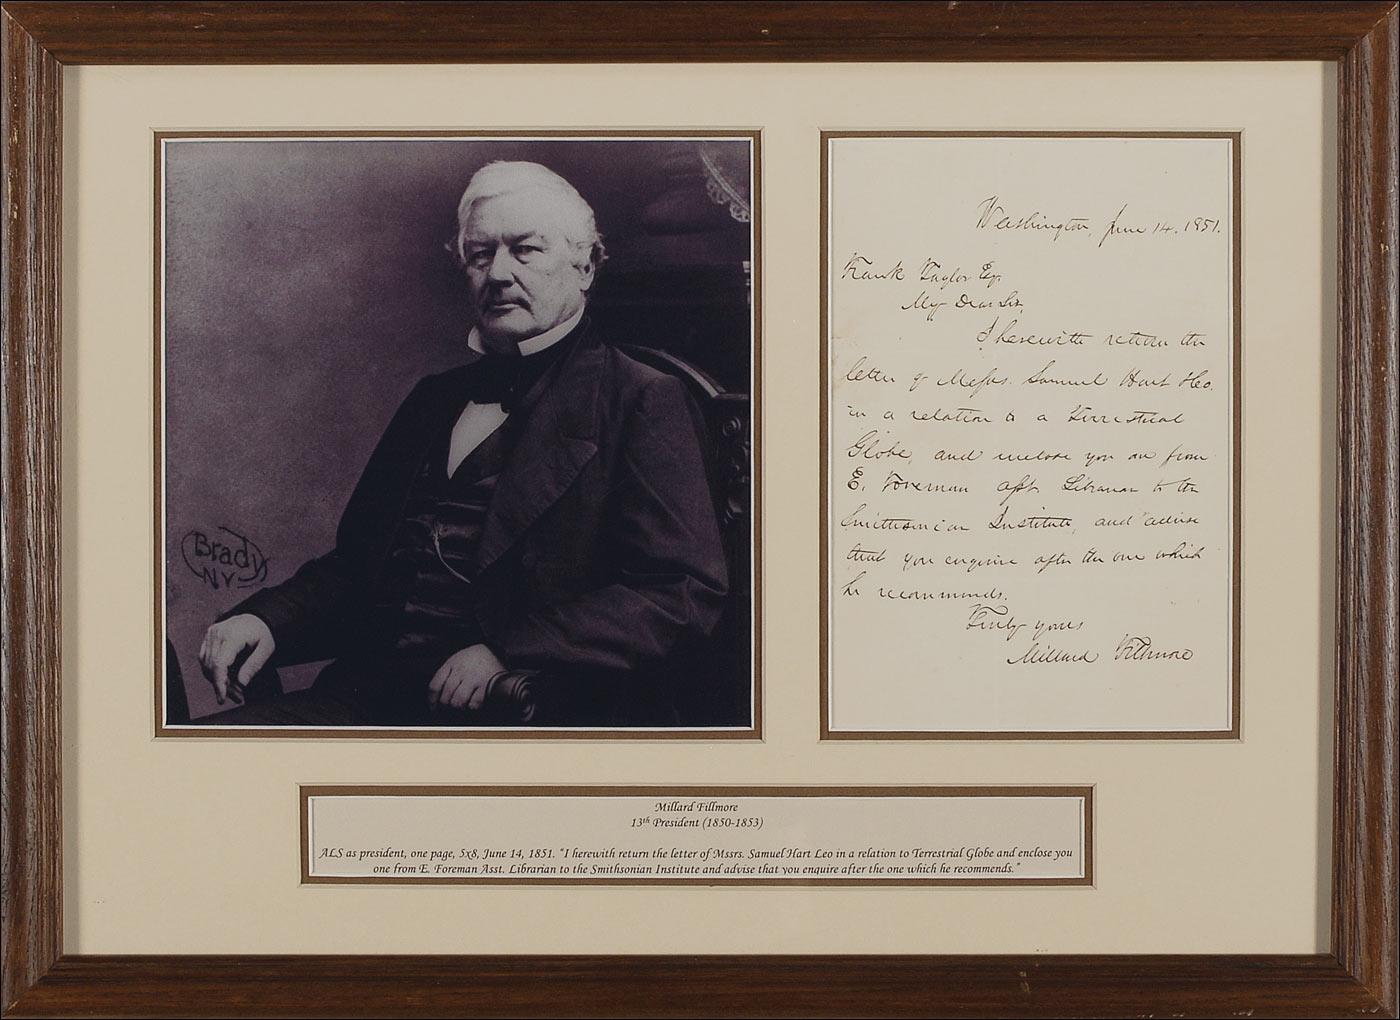 Brady
NY
Washington, June 14. 1851.
Frank Taylor Esq.
My Dear Sir,
I herewith return the
letter of Messrs. Samuel Hart &Co.
in a relation to a Terrestrial
Globe, and inclose you one from
E. Foreman asst. Librarian to the
Smithsonian Institute, and advise
that you enquire after the one which
he recommends.
Truly yours
Millard Fillmore
Millard Fillmore
13th President (1850-1853)
ALS as president, one page, 5x8, June 14, 1851. "I herewith return the letter of Mssrs. Samuel Hart Leo in a relation to Terrestrial Globe and enclose you
one from E. Foreman Asst. Librarian to the Smithsonian Institute and advise that you enquire after the one which he recommends."